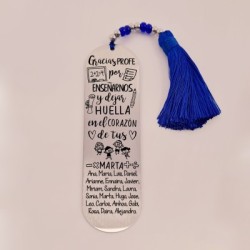 Gracias PROFE
2024 por
ENSEÑARNOS
y dejar
HUELLA
en el CORAZÓN
de tus
MARTA
Ana, Mario, Luis, Daniel,
Arianne, Ennaira, Javier,
Miriam, Sandra, Laura,
Sonia, Marta, Hugo, Jose,
Leo, Carlos, Ainhoa, Gabi,
Rosa, Daira, Alejandro.